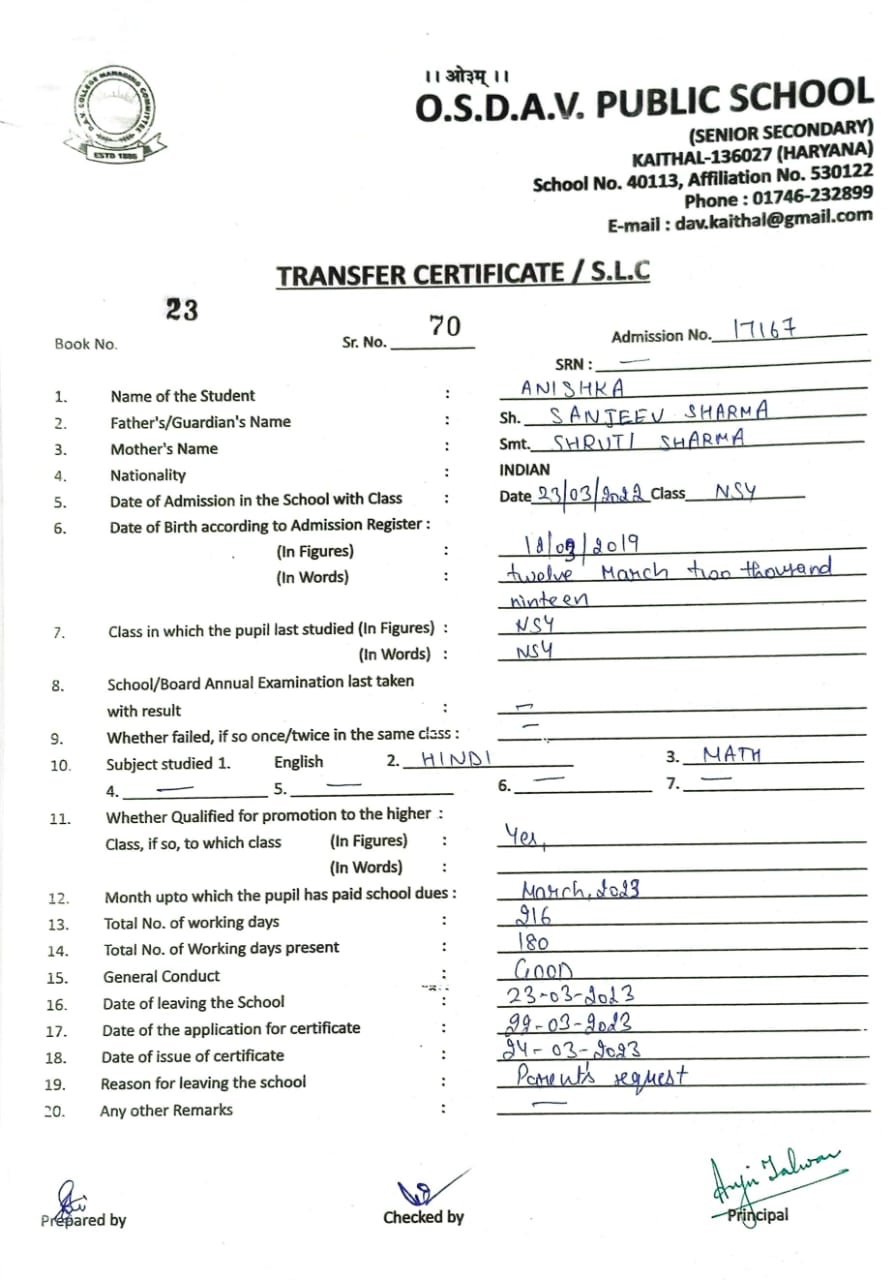 D.A.V. COLLEGE MANAGING COMMITTEE
ESTD 1886
।। ओ३म् ।।
O.S.D.A.V. PUBLIC SCHOOL
(SENIOR SECONDARY)
KAITHAL-136027 (HARYANA)
School No. 40113, Affiliation No. 530122
Phone : 01746-232899
E-mail : dav.kaithal@gmail.com
TRANSFER CERTIFICATE / S.L.C
Book No. 23 Sr. No. 70 Admission No. 17167
SRN : —
1. Name of the Student : ANISHKA
2. Father's/Guardian's Name : Sh. SANJEEV SHARMA
3. Mother's Name : Smt. SHRUTI SHARMA
4. Nationality : INDIAN
5. Date of Admission in the School with Class : Date 23/03/2022 Class NSY
6. Date of Birth according to Admission Register :
(In Figures) : 12/03/2019
(In Words) : twelve March two thousand
ninteen
7. Class in which the pupil last studied (In Figures) : NSY
(In Words) : NSY
8. School/Board Annual Examination last taken
with result : —
9. Whether failed, if so once/twice in the same class : —
10. Subject studied 1. English 2. HINDI 3. MATH
4. — 5. — 6. — 7. —
11. Whether Qualified for promotion to the higher :
Class, if so, to which class (In Figures) : Yes,
(In Words) :
12. Month upto which the pupil has paid school dues : March, 2023
13. Total No. of working days : 216
14. Total No. of Working days present : 180
15. General Conduct : GOOD
16. Date of leaving the School : 23-03-2023
17. Date of the application for certificate : 22-03-2023
18. Date of issue of certificate : 24-03-2023
19. Reason for leaving the school : Parent's request
20. Any other Remarks : —
Anju Talwar
Prepared by Checked by Principal